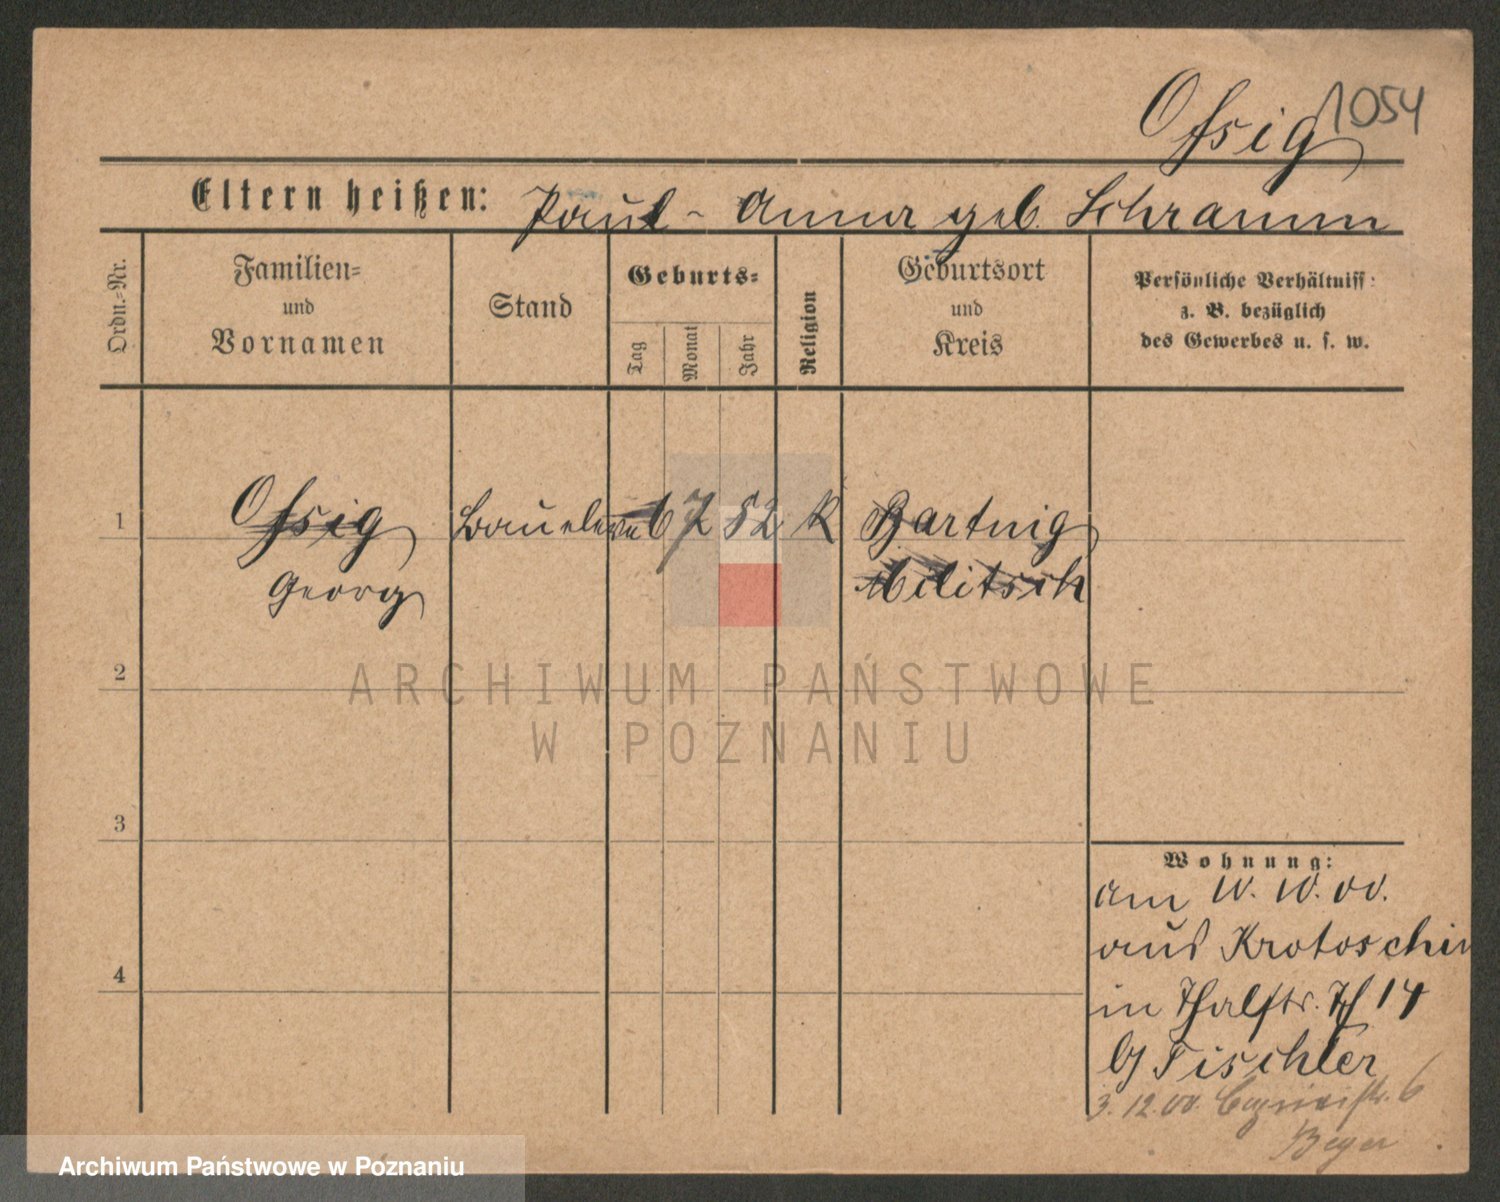 Ossig
1054
Eltern heißen: Paul - Anna geb. Schramm
Ordn.=Nr.
Familien=
und
Vornamen
Stand
Geburts=
Tag
Monat
Jahr
Religion
Geburtsort
und
Kreis
Persönliche Verhältniss:
z. B. bezüglich
des Gewerbes u. s. w.
1
Ossig
Georg
Baueleve
6 7 82 K
Bartnig
Militsch
2
ARCHIWUM PAŃSTWOWE
W POZNANIU
3
4
Wohnung:
am 10. 10. 00.
aus Krotoschin
in Thalstr. 14
b/ Tischler
3. 12. 00. 6
Beyer
Archiwum Państwowe w Poznaniu